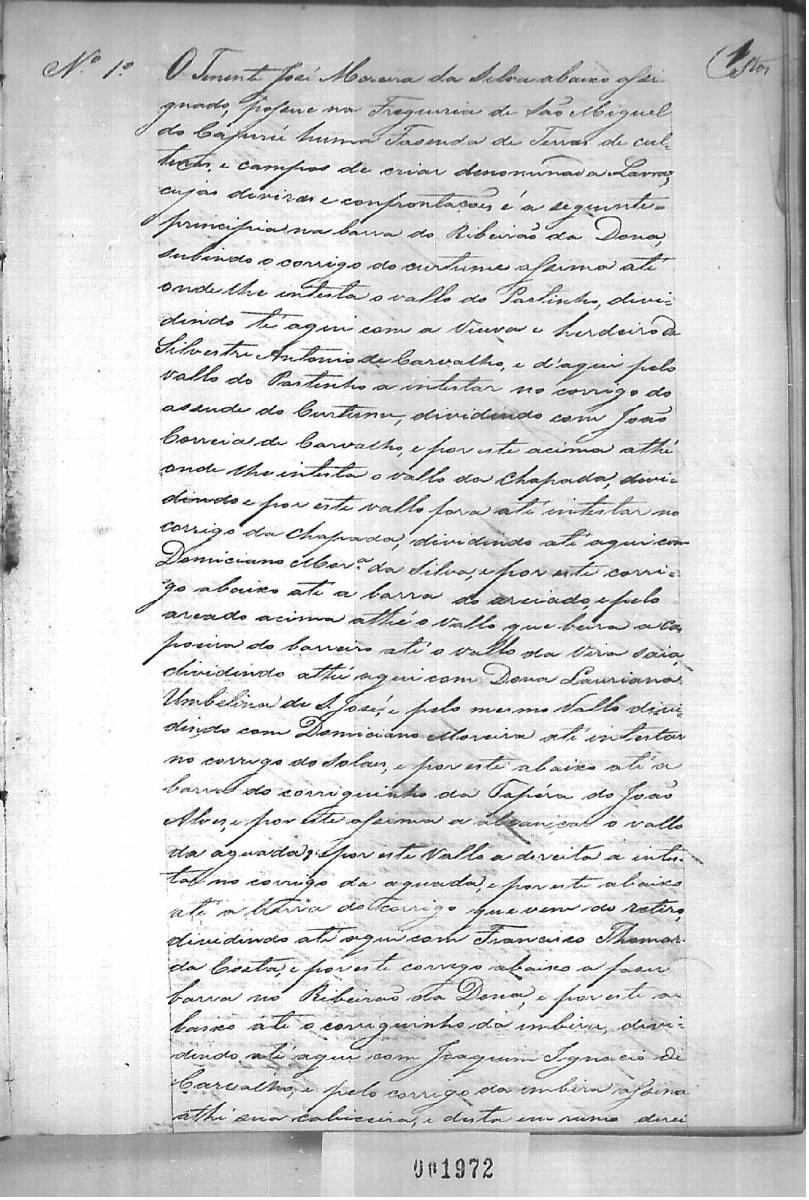 Nº 1º
1
O Tenente José Moreira da Silva abaixo assi-
gnado, possue na Freguesia de São Miguel
do Cajurú huma Fasenda de Terras de cul-
turas, e campos de criar denominada Lavra,
cujas divisas e confrontações é a seguinte =
principia na barra do Ribeirão da Dona,
subindo o corrigo do curtume assima até
onde lhe intesta o vallo do Pastinho, divi-
dindo té aqui com a Viuva e herdeiro de
Silvestre Antonio de Carvalho, e d'aqui pelo
vallo do Pastinho a intestar no corrigo do
assude do Curtume, dividindo com João
Correia de Carvalho, e por este acima athé
onde lhe intesta o vallo da chapada, divi-
dindo e por este vallo fora até intestar no
corrigo da chapada, dividindo até aqui com
Domiciano Mor.ª da Silva, e por este corri-
go abaixo até a barra do areiado, e pelo
areado acima athé o vallo que beira a ca
poeira do barreiro até o vallo da Vira saia,
dividindo athé aqui com Dona Lauriana
Umbelina de S. José, e pelo mesmo Vallo divi-
dindo com Domiciano Moreira até intestar
no corrigo do, e por este abaixo até a
barra do corriguinho da Tapéra do João
Alves, e por este assima a alcançar o vallo
da aguada, e por este Vallo a direita a intes-
tar no corrigo da aguada, e por este abaixo
até a barra do corrigo que vem do retiro,
dividindo até aqui com Francisco Thomas
da Costa, e por este corrego abaixo a faser
barra no Ribeirão da Dona, e por este a
baixo até o corriguinho da imbira, divi-
dindo até aqui com Joaquim Ignacio de
Carvalho, e pelo corrigo da imbira assima
athé sua cabiceira, e desta em rumo direi
001972